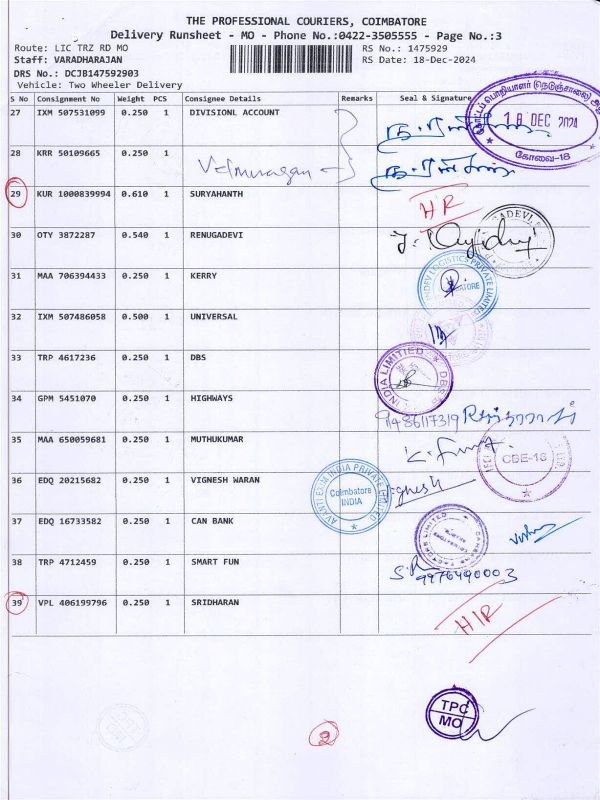 THE PROFESSIONAL COURIERS, COIMBATORE
Delivery Runsheet - MO - Phone No.:0422-3505555 - Page No.:3
Route: LIC TRZ RD MO RS No.: 1475929
Staff: VARADHARAJAN RS Date: 18-Dec-2024
DRS No.: DCJB147592903
Vehicle: Two Wheeler Delivery
S No Consignment No Weight PCS Consignee Details Remarks Seal & Signature
27 IXM 507531099 0.250 1 DIVISIONL ACCOUNT
18 DEC 2024
கோவை-18
28 KRR 50109665 0.250 1
Velmurugan
29 KUR 1000839994 0.610 1 SURYAHANTH HR
30 OTY 3872287 0.540 1 RENUGADEVI
31 MAA 706394433 0.250 1 KERRY
32 IXM 507486058 0.500 1 UNIVERSAL
33 TRP 4617236 0.250 1 DBS
34 GPM 5451070 0.250 1 HIGHWAYS 9486117319
35 MAA 650059681 0.250 1 MUTHUKUMAR
CBE-18
36 EDQ 20215682 0.250 1 VIGNESH WARAN
AVANTI EXIM INDIA PRIVATE LIMITED
Coimbatore
INDIA
37 EDQ 16733582 0.250 1 CAN BANK
38 TRP 4712459 0.250 1 SMART FUN
9976490003
39 VPL 406199796 0.250 1 SRIDHARAN HIR
TPC
MO